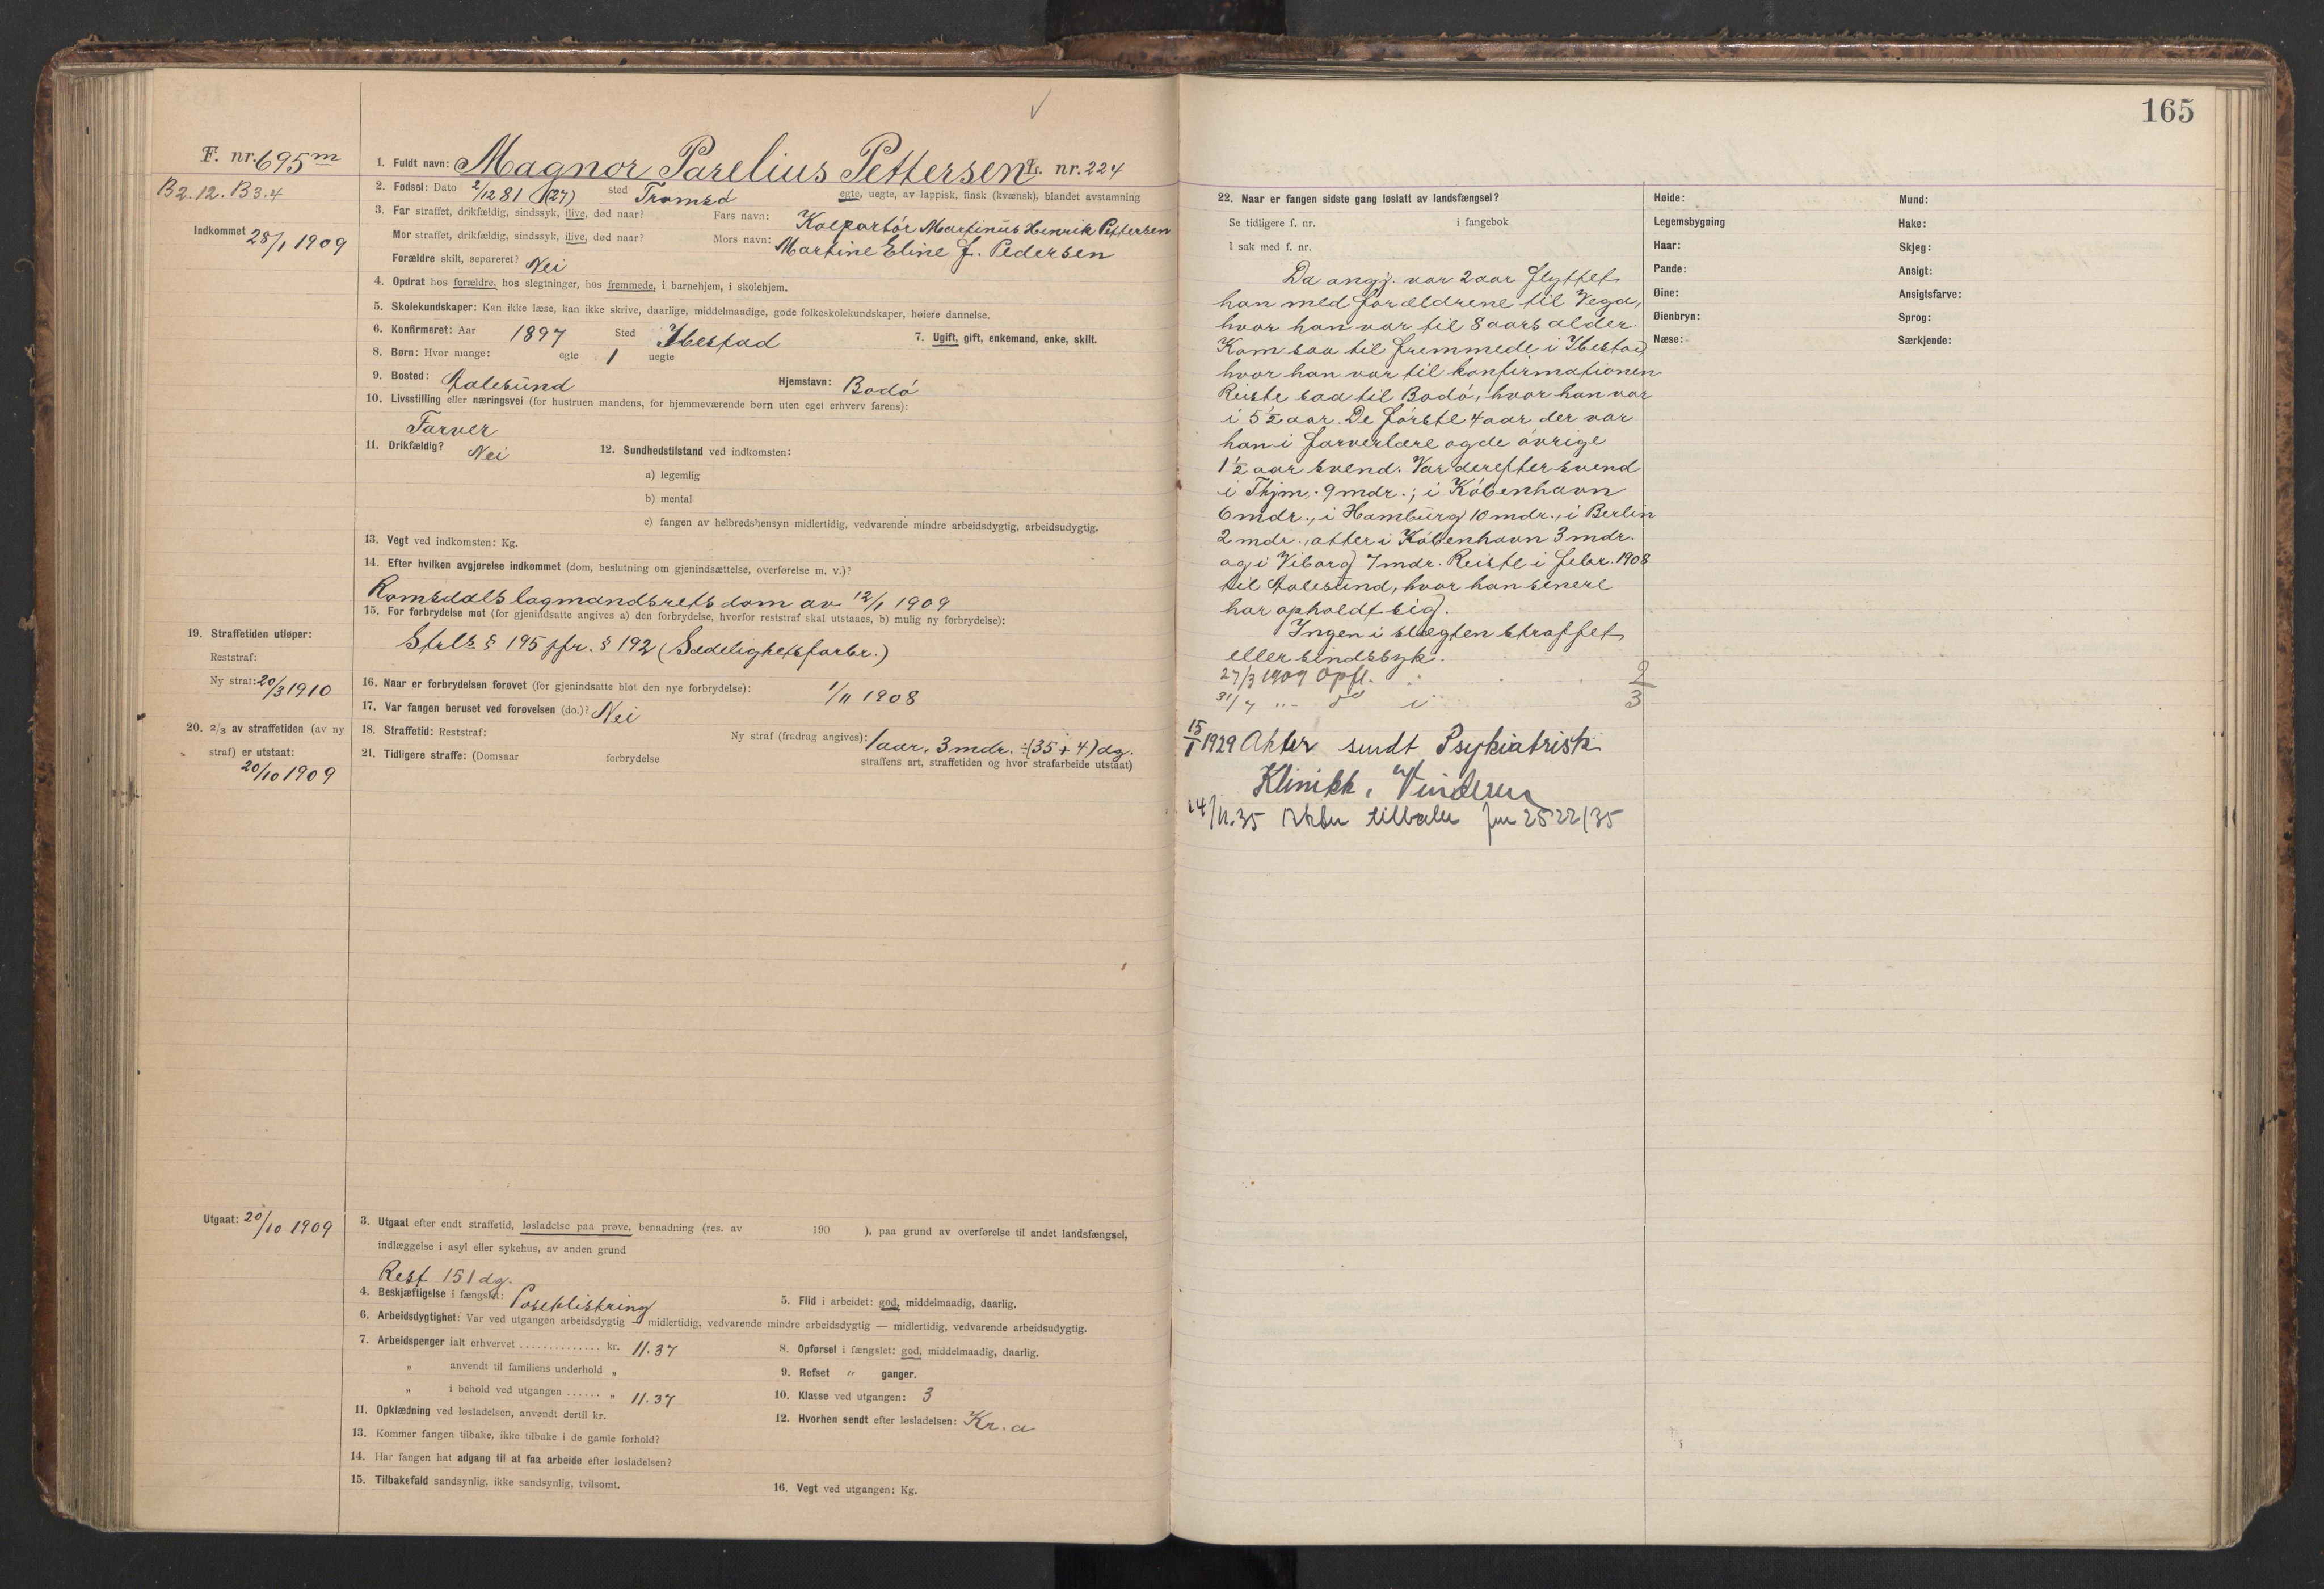 165
F. nr. 695 m
B2.12. B3.4
Indkommet 28/1 1909
1. Fuldt navn: Magnor Parelius Pettersen L. nr. 224
2. Fødsel: Dato 2/12 81 (27) sted Tromsö egte, uegte, av lappisk, finsk (kvænsk), blandet avstamning
3. Far straffet, drikfældig, sindssyk, ilive, død naar? Fars navn: Kolportör Martinus Henrik Pettersen
Mor straffet, drikfældig, sindssyk, ilive, død naar? Mors navn: Martine Eline f. Pedersen
Forældre skilt, separeret? Nei
4. Opdrat hos forældre, hos slegtninger, hos fremmede, i barnehjem, i skolehjem.
5. Skolekundskaper: Kan ikke læse, kan ikke skrive, daarlige, middelmaadige, gode folkeskolekundskaper, høiere dannelse.
6. Konfirmeret: Aar 1897 Sted Ibestad 7. Ugift, gift, enkemand, enke, skilt.
8. Børn: Hvor mange: egte 1 uegte
9. Bosted: Aalesund Hjemstavn: Bodö
10. Livsstilling eller næringsvei (for hustruen mandens, for hjemmeværende børn uten eget erhverv farens):
Farver
11. Drikfældig? Nei 12. Sundhedstilstand ved indkomsten:
a) legemlig
b) mental
c) fangen av helbredshensyn midlertidig, vedvarende mindre arbeidsdygtig, arbeidsudygtig.
13. Vegt ved indkomsten: Kg.
14. Efter hvilken avgjørelse indkommet (dom, beslutning om gjenindsættelse, overførelse m. v.)?
Romsdals lagmandsrets dom av 12/1 1909
15. For forbrydelse mot (for gjenindsatte angives a) den forbrydelse, hvorfor reststraf skal utstaaes, b) mulig ny forbrydelse):
Strl's § 195 jfr. § 192 (Sædelighetsforbr.)
19. Straffetiden utløper:
Reststraf:
Ny straf: 20/3 1910
16. Naar er forbrydelsen forøvet (for gjenindsatte blot den nye forbrydelse): 1/11 1908
17. Var fangen beruset ved forøvelsen (do.)? Nei
20. 2/3 av straffetiden (av ny
straf) er utstaat:
20/10 1909
18. Straffetid: Reststraf: Ny straf (fradrag angives): 1 aar, 3 mdr. ÷ (35 + 4) dg.
21. Tidligere straffe: (Domsaar forbrydelse straffens art, straffetiden og hvor strafarbeide utstaat)
Utgaat: 20/10 1909
3. Utgaat efter endt straffetid, løsladelse paa prøve, benaadning (res. av 190 ), paa grund av overførelse til andet landsfængsel,
indlæggelse i asyl eller sykehus, av anden grund
Rest 151 dg.
4. Beskjæftigelse i fængslet: Poseklistring 5. Flid i arbeidet: god, middelmaadig, daarlig.
6. Arbeidsdygtighet: Var ved utgangen arbeidsdygtig — midlertidig, vedvarende mindre arbeidsdygtig — midlertidig, vedvarende arbeidsudygtig.
7. Arbeidspenger ialt erhvervet .............. kr. 11.37 8. Opførsel i fængslet: god, middelmaadig, daarlig.
„ anvendt til familiens underhold „ 9. Refset " ganger.
„ i behold ved utgangen ...... „ 11.37 10. Klasse ved utgangen: 3
11. Opklædning ved løsladelsen, anvendt dertil kr. 12. Hvorhen sendt efter løsladelsen: Kr.a
13. Kommer fangen tilbake, ikke tilbake i de gamle forhold?
14. Har fangen hat adgang til at faa arbeide efter løsladelsen?
15. Tilbakefald sandsynlig, ikke sandsynlig, tvilsomt.
16. Vegt ved utgangen: Kg.
22. Naar er fangen sidste gang løslatt av landsfængsel?
Se tidligere f. nr. i fangebok
I sak med f. nr.
Da angj. var 2 aar flyttet
han med forældrene til Vega,
hvor han var til 8 aars alder.
Kom saa til fremmede i Ibestad,
hvor han var til konfirmationen
Reiste saa til Bodö, hvor han var
i 5½ aar. De förste 4 aar der var
han i farverlære og de övrige
1½ aar svend. Var derefter svend
i Thjm. 9 mdr.; i Köbenhavn
6 mdr., i Hamburg 10 mdr., i Berlin
2 mdr., atter i Köbenhavn 3 mdr.
og i Viborg 7 mdr. Reiste i febr. 1908
til Aalesund, hvor han senere
har opholdt sig.
Ingen i slegten straffet
eller sindssyk.
27/3 1909 Opfl. 2
31/7 "- do i 3
15/1 1929 Akter sendt Psykiatrisk
Klinikk, Vinderen
14/11.35 Akter tilbake jnr 2522/35
Høide:
Legemsbygning
Haar:
Pande:
Øine:
Øienbryn:
Næse:
Mund:
Hake:
Skjeg:
Ansigt:
Ansigtsfarve:
Sprog:
Særkjende: